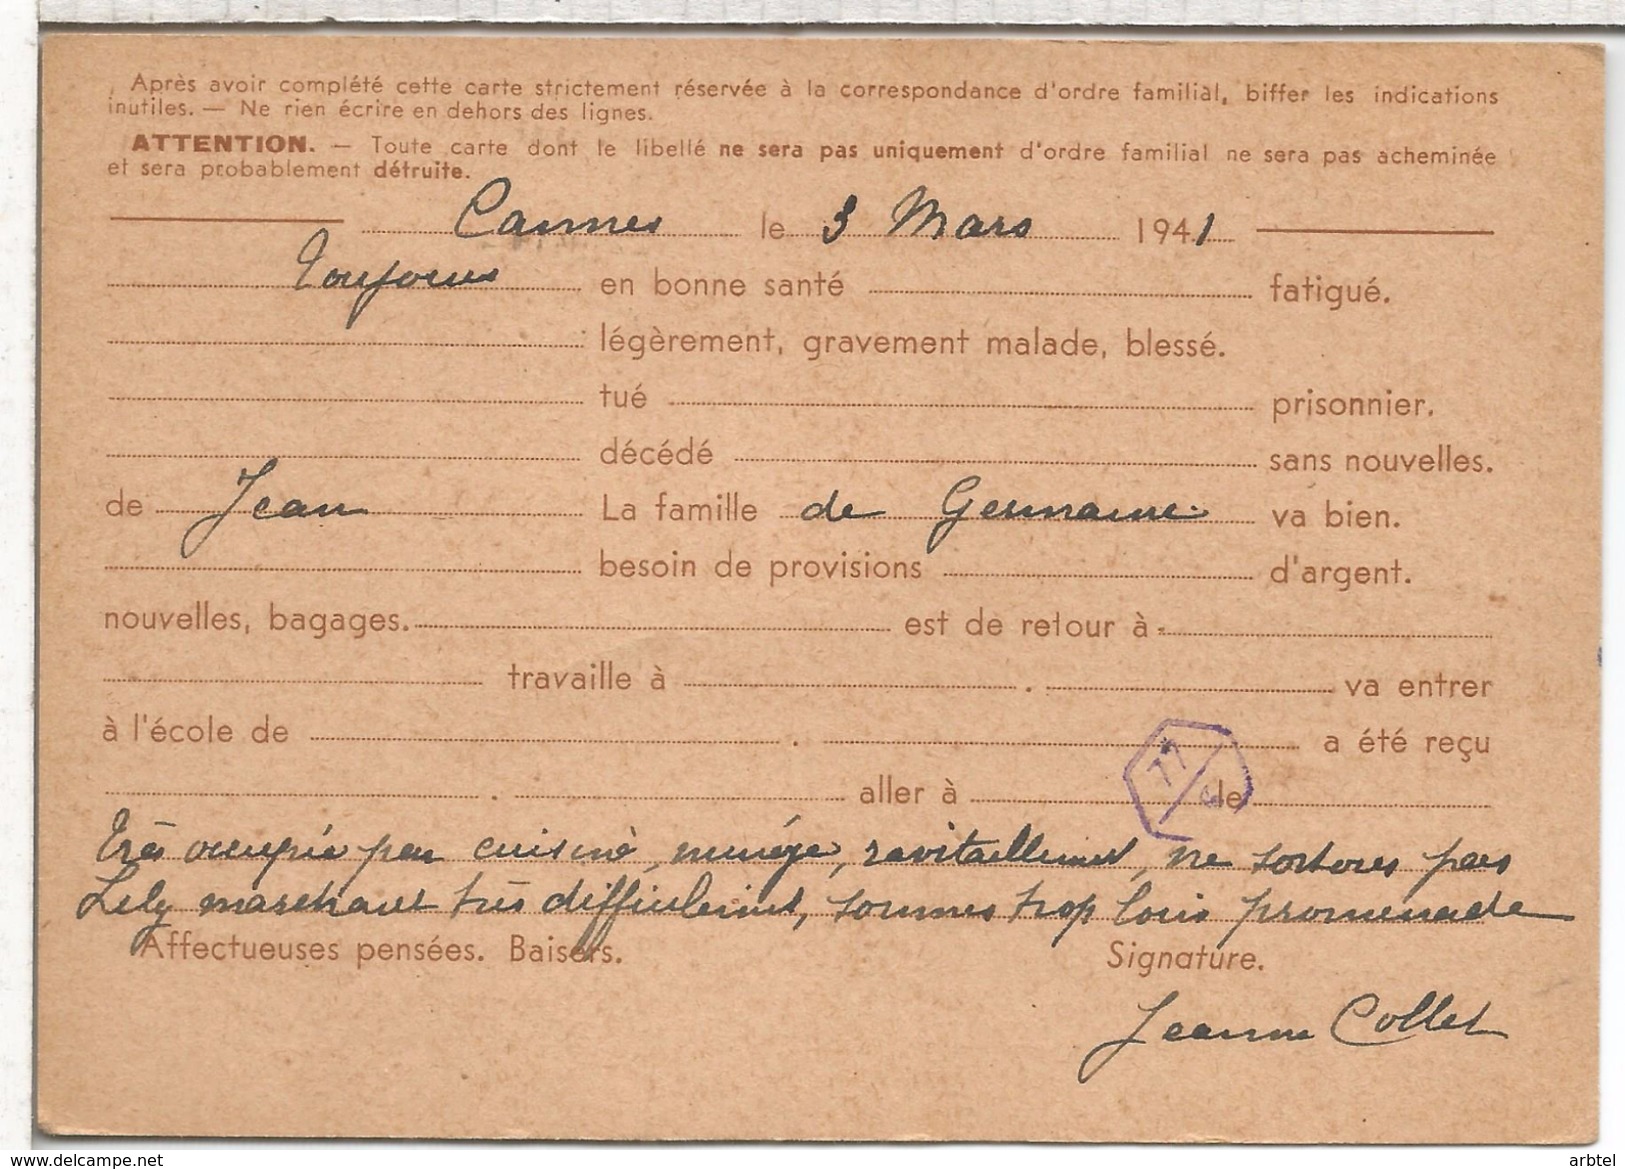 Après avoir complété cette carte strictement réservée à la correspondance d'ordre familial, biffer les indications
inutiles. — Ne rien écrire en dehors des lignes.
ATTENTION. — Toute carte dont le libellé ne sera pas uniquement d'ordre familial ne sera pas acheminée
et sera probablement détruite.
Cannes le 3 Mars 1941
Toujours en bonne santé fatigué.
légèrement, gravement malade, blessé.
tué prisonnier.
décédé sans nouvelles.
de Jean La famille de Germaine va bien.
besoin de provisions d'argent.
nouvelles, bagages. est de retour à
travaille à . va entrer
à l'école de . a été reçu
77
. aller à le
très occupée par cuisine, ménage, ravitaillement, ne sortons pas
Lily marchant très difficilement, sommes trop loin promenade
Affectueuses pensées. Baisers. Signature.
Jeanne Collet
https://www.delcampe.net arbtel